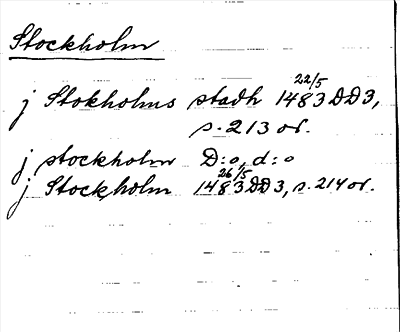 Stockholm
j Stokholms stadh 1483 22/5 DD3,
s. 213 or.
j stockholm D:o, d:o
j Stockholm 1483 26/5 DD3, s. 214 or.